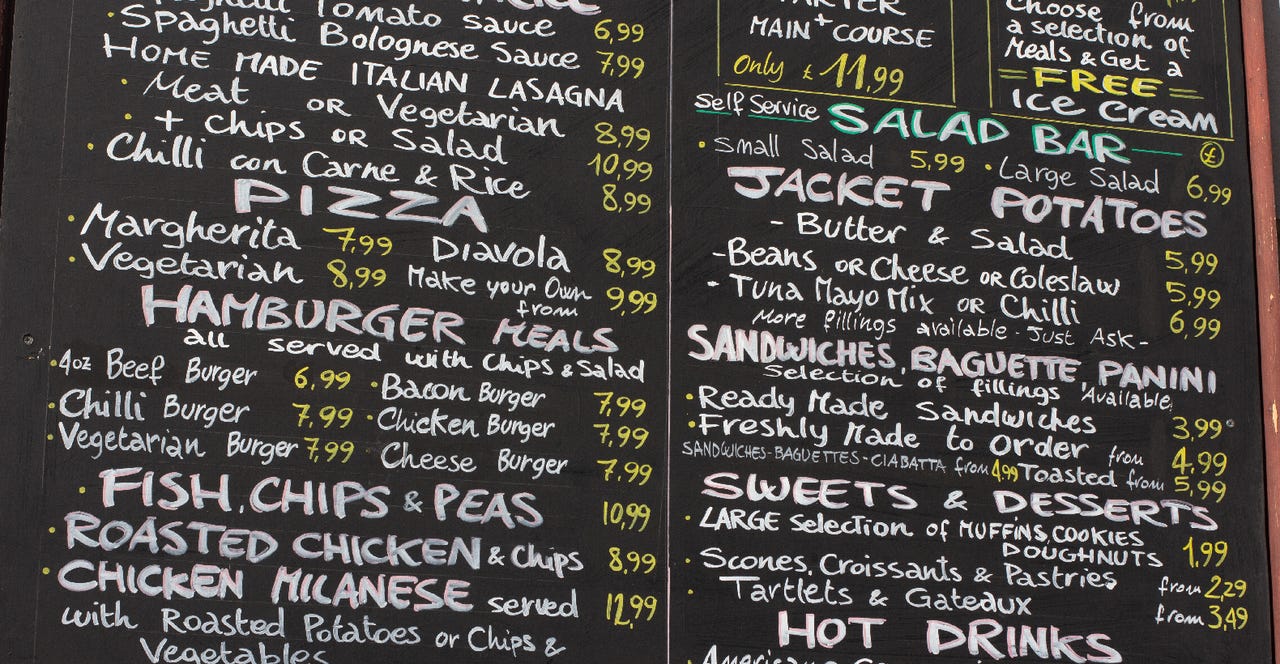 Tomato Sauce 6,99
Spaghetti Bolognese Sauce 7,99
HOME MADE ITALIAN LASAGNA
• Meat OR Vegetarian 8,99
• + Chips OR Salad 10,99
• Chilli con Carne & Rice 8,99
PIZZA
• Margherita 7,99 Diavola 8,99
• Vegetarian 8,99 Make your Own from 9,99
HAMBURGER MEALS
all served with Chips & Salad
• 4oz Beef Burger 6,99 • Bacon Burger 7,99
• Chilli Burger 7,99 • Chicken Burger 7,99
• Vegetarian Burger 7,99 Cheese Burger 7,99
• FISH, CHIPS & PEAS 10,99
• ROASTED CHICKEN & Chips 8,99
• CHICKEN MILANESE served 12,99
with Roasted Potatoes or Chips &
Vegetables
+
MAIN COURSE
Only £ 11,99
Choose from
a selection of
Meals & Get a
= FREE =
Ice Cream
Self Service SALAD BAR £
• Small Salad 5,99 • Large Salad 6,99
JACKET POTATOES
- Butter & Salad 5,99
- Beans OR Cheese OR Coleslaw 5,99
- Tuna Mayo Mix OR Chilli 6,99
More fillings available - Just Ask -
SANDWICHES, BAGUETTE, PANINI
Selection of fillings Available
• Ready Made Sandwiches 3,99
• Freshly Made to Order from 4,99
SANDWICHES - BAGUETTES - CIABATTA from 4,99 Toasted from 5,99
SWEETS & DESSERTS
• LARGE Selection of MUFFINS, COOKIES
DOUGHNUTS 1,99
• Scones, Croissants & Pastries from 2,29
• Tartlets & Gateaux from 3,49
HOT DRINKS